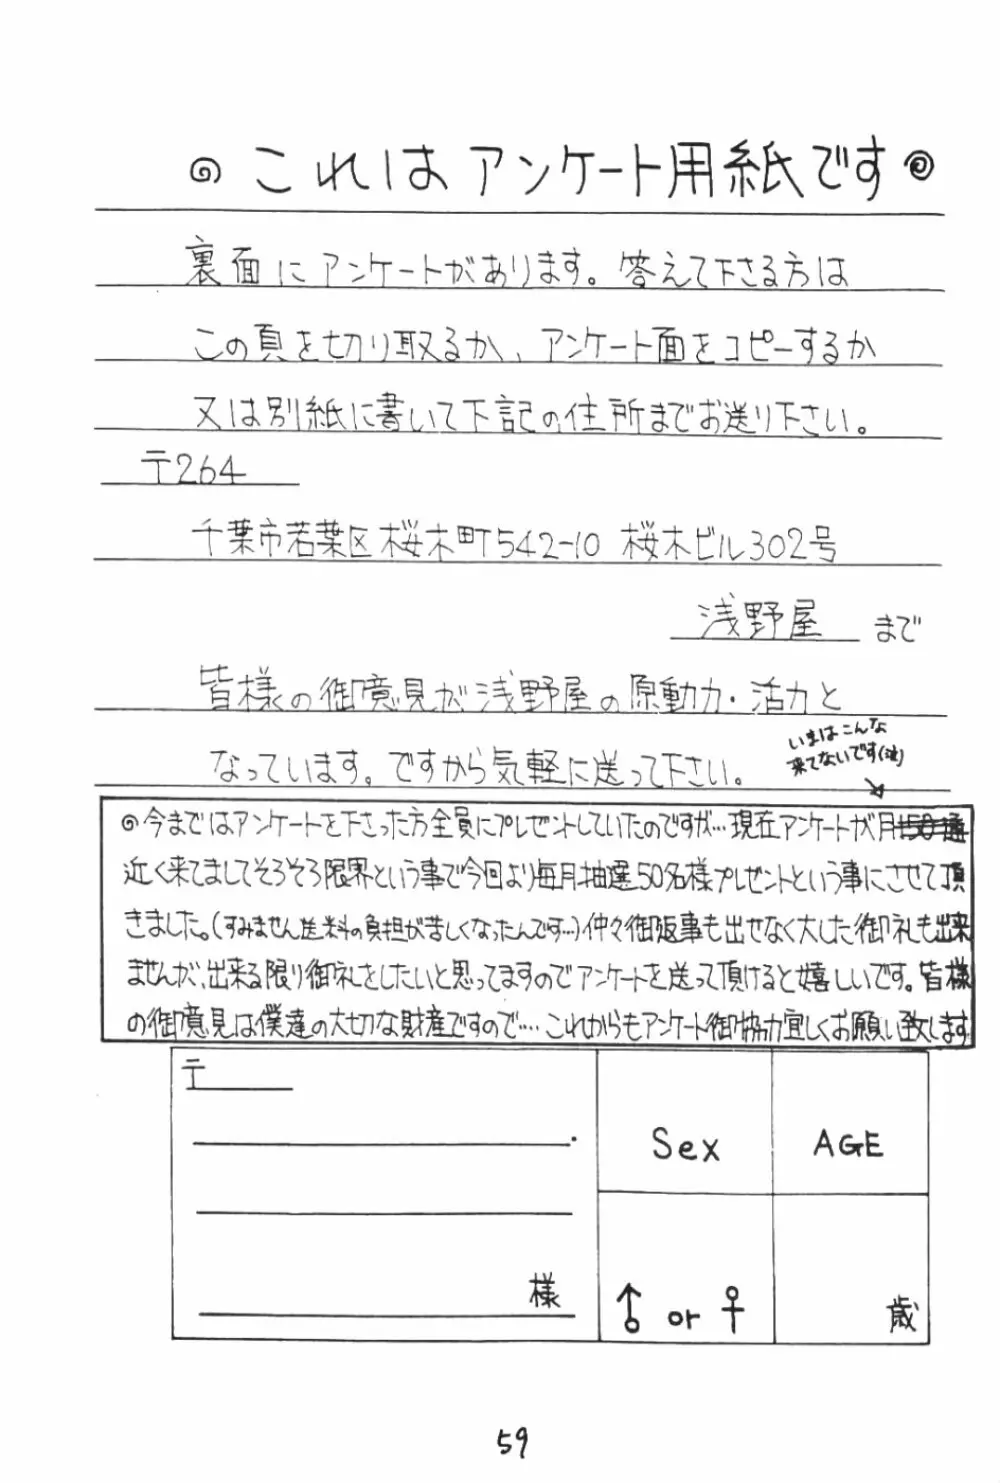 これはアンケート用紙です
裏面にアンケートがあります。答えて下さる方は
この頁を切り取るか、アンケート面をコピーするか
又は別紙に書いて下記の住所までお送り下さい。
〒264
千葉市若葉区桜木町542-10 桜木ビル302号
浅野屋 まで
皆様の御意見が浅野屋の原動力・活力と
なっています。ですから気軽に送って下さい。
いまはこんな
来てないです(泣)
◎今まではアンケートを下さった方全員にプレゼントしていたのですが…現在アンケートが月150通
近く来てましてそろそろ限界という事で今回より毎月抽選50名様プレゼントという事にさせて頂
きました。(すみません送料の負担が苦しくなったんです…)仲々御返事も出せなく大した御礼も出来
ませんが、出来る限り御礼をしたいと思ってますのでアンケートを送って頂けると嬉しいです。皆様
の御意見は僕達の大切な財産ですので…これからもアンケート御協力宜しくお願い致します
〒
Sex AGE
様 ♂ or ♀ 歳
59